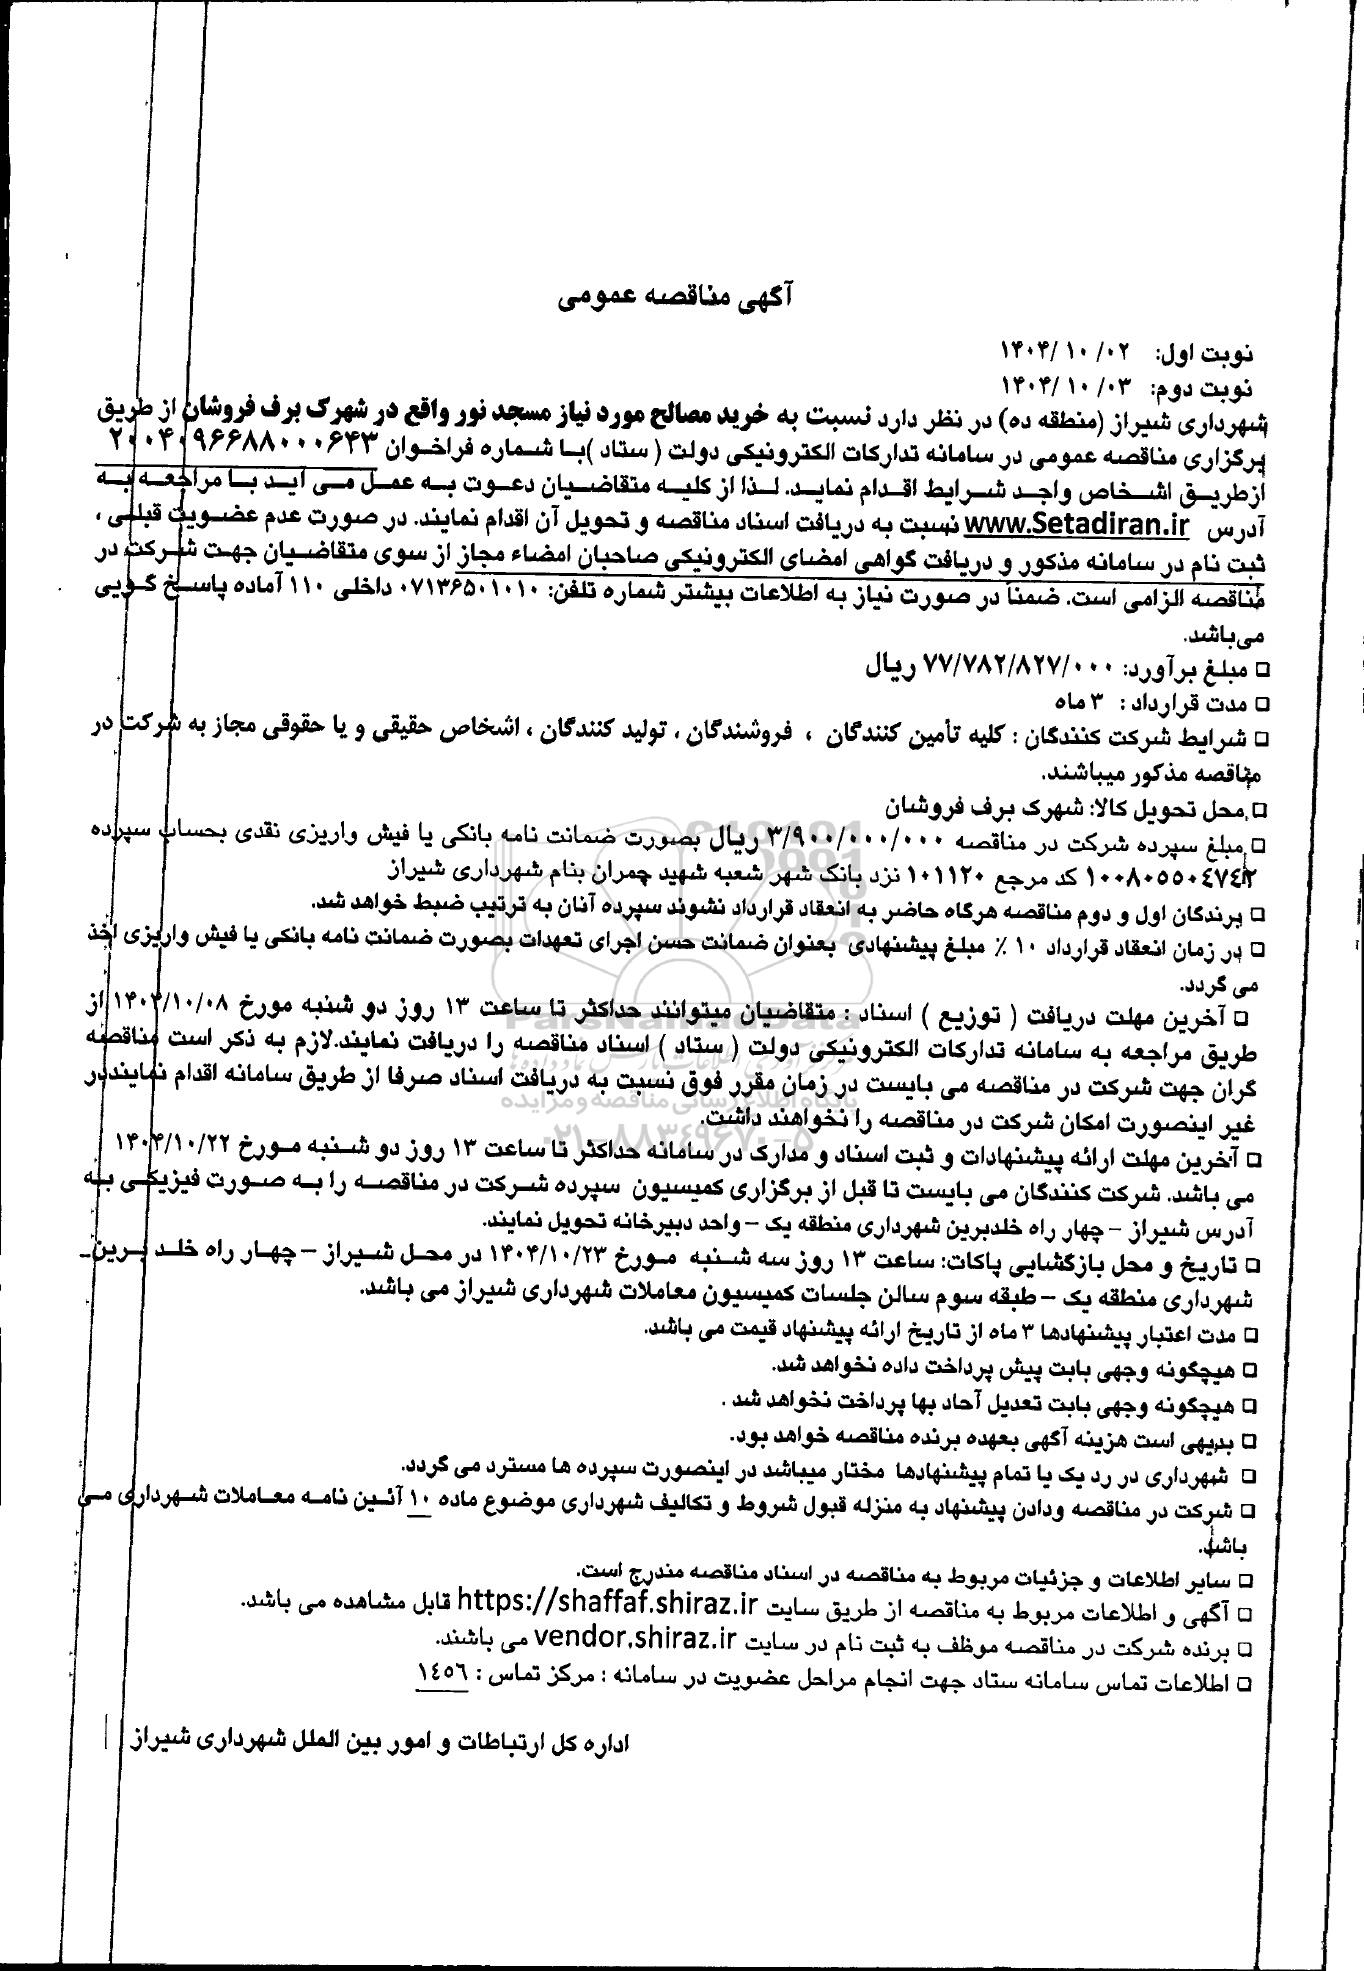 آگهی مناقصه عمومی
نوبت اول: ۱۴۰۴/۱۰/۰۲
نوبت دوم: ۱۴۰۴/۱۰/۰۳
شهرداری شیراز (منطقه ده) در نظر دارد نسبت به خرید مصالح مورد نیاز مسجد نور واقع در شهرک برف فروشان از طریق
برگزاری مناقصه عمومی در سامانه تدارکات الکترونیکی دولت ( ستاد )با شماره فراخوان ۲۰۰۴۰۹۶۶۸۸۰۰۰۶۴۳
ازطریق اشخاص واجد شرایط اقدام نماید. لذا از کلیه متقاضیان دعوت به عمل می آید با مراجعه به
آدرس www.Setadiran.ir نسبت به دریافت اسناد مناقصه و تحویل آن اقدام نمایند. در صورت عدم عضویت قبلی ،
ثبت نام در سامانه مذکور و دریافت گواهی امضای الکترونیکی صاحبان امضاء مجاز از سوی متقاضیان جهت شرکت در
مناقصه الزامی است. ضمناً در صورت نیاز به اطلاعات بیشتر شماره تلفن: ۰۷۱۳۶۵۰۱۰۱۰ داخلی ۱۱۰ آماده پاسخ گویی
می‌باشد.
□ مبلغ برآورد: ۷۷/۷۸۲/۸۲۷/۰۰۰ ریال
□ مدت قرارداد : ۳ ماه
□ شرایط شرکت کنندگان : کلیه تأمین کنندگان ، فروشندگان ، تولید کنندگان ، اشخاص حقیقی و یا حقوقی مجاز به شرکت در
مناقصه مذکور میباشند.
□ محل تحویل کالا: شهرک برف فروشان
□ مبلغ سپرده شرکت در مناقصه ۳/۹۰۰/۰۰۰/۰۰۰ ریال بصورت ضمانت نامه بانکی یا فیش واریزی نقدی بحساب سپرده
۱۰۰۸۰۵۵۰۴۷۴۲ کد مرجع ۱۰۱۱۲۰ نزد بانک شهر شعبه شهید چمران بنام شهرداری شیراز
□ برندگان اول و دوم مناقصه هرگاه حاضر به انعقاد قرارداد نشوند سپرده آنان به ترتیب ضبط خواهد شد.
□ در زمان انعقاد قرارداد ۱۰ ٪ مبلغ پیشنهادی بعنوان ضمانت حسن اجرای تعهدات بصورت ضمانت نامه بانکی یا فیش واریزی اخذ
می گردد.
□ آخرین مهلت دریافت ( توزیع ) اسناد : متقاضیان میتوانند حداکثر تا ساعت ۱۳ روز دو شنبه مورخ ۱۴۰۴/۱۰/۰۸ از
طریق مراجعه به سامانه تدارکات الکترونیکی دولت ( ستاد ) اسناد مناقصه را دریافت نمایند.لازم به ذکر است مناقصه
گران جهت شرکت در مناقصه می بایست در زمان مقرر فوق نسبت به دریافت اسناد صرفا از طریق سامانه اقدام نماینددر
غیر اینصورت امکان شرکت در مناقصه را نخواهند داشت.
□ آخرین مهلت ارائه پیشنهادات و ثبت اسناد و مدارک در سامانه حداکثر تا ساعت ۱۳ روز دو شنبه مورخ ۱۴۰۴/۱۰/۲۲
می باشد. شرکت کنندگان می بایست تا قبل از برگزاری کمیسیون سپرده شرکت در مناقصه را به صورت فیزیکی به
آدرس شیراز – چهار راه خلدبرین شهرداری منطقه یک – واحد دبیرخانه تحویل نمایند.
□ تاریخ و محل بازگشایی پاکات: ساعت ۱۳ روز سه شنبه مورخ ۱۴۰۴/۱۰/۲۳ در محل شیراز – چهار راه خلد برین-
شهرداری منطقه یک – طبقه سوم سالن جلسات کمیسیون معاملات شهرداری شیراز می باشد.
□ مدت اعتبار پیشنهادها ۳ ماه از تاریخ ارائه پیشنهاد قیمت می باشد.
□ هیچگونه وجهی بابت پیش پرداخت داده نخواهد شد.
□ هیچگونه وجهی بابت تعدیل آحاد بها پرداخت نخواهد شد .
□ بدیهی است هزینه آگهی بعهده برنده مناقصه خواهد بود.
□ شهرداری در رد یک یا تمام پیشنهادها مختار میباشد در اینصورت سپرده ها مسترد می گردد.
□ شرکت در مناقصه ودادن پیشنهاد به منزله قبول شروط و تکالیف شهرداری موضوع ماده ۱۰ آئین نامه معاملات شهرداری می
باشد.
□ سایر اطلاعات و جزئیات مربوط به مناقصه در اسناد مناقصه مندرج است.
□ آگهی و اطلاعات مربوط به مناقصه از طریق سایت https://shaffaf.shiraz.ir قابل مشاهده می باشد.
□ برنده شرکت در مناقصه موظف به ثبت نام در سایت vendor.shiraz.ir می باشند.
□ اطلاعات تماس سامانه ستاد جهت انجام مراحل عضویت در سامانه : مرکز تماس : ۱۴۵۶
اداره کل ارتباطات و امور بین الملل شهرداری شیراز
ParsNamadData
پایگاه اطلاع رسانی مناقصه و مزایده
۰۲۱-۸۸۳۴۹۶۷۰-۵